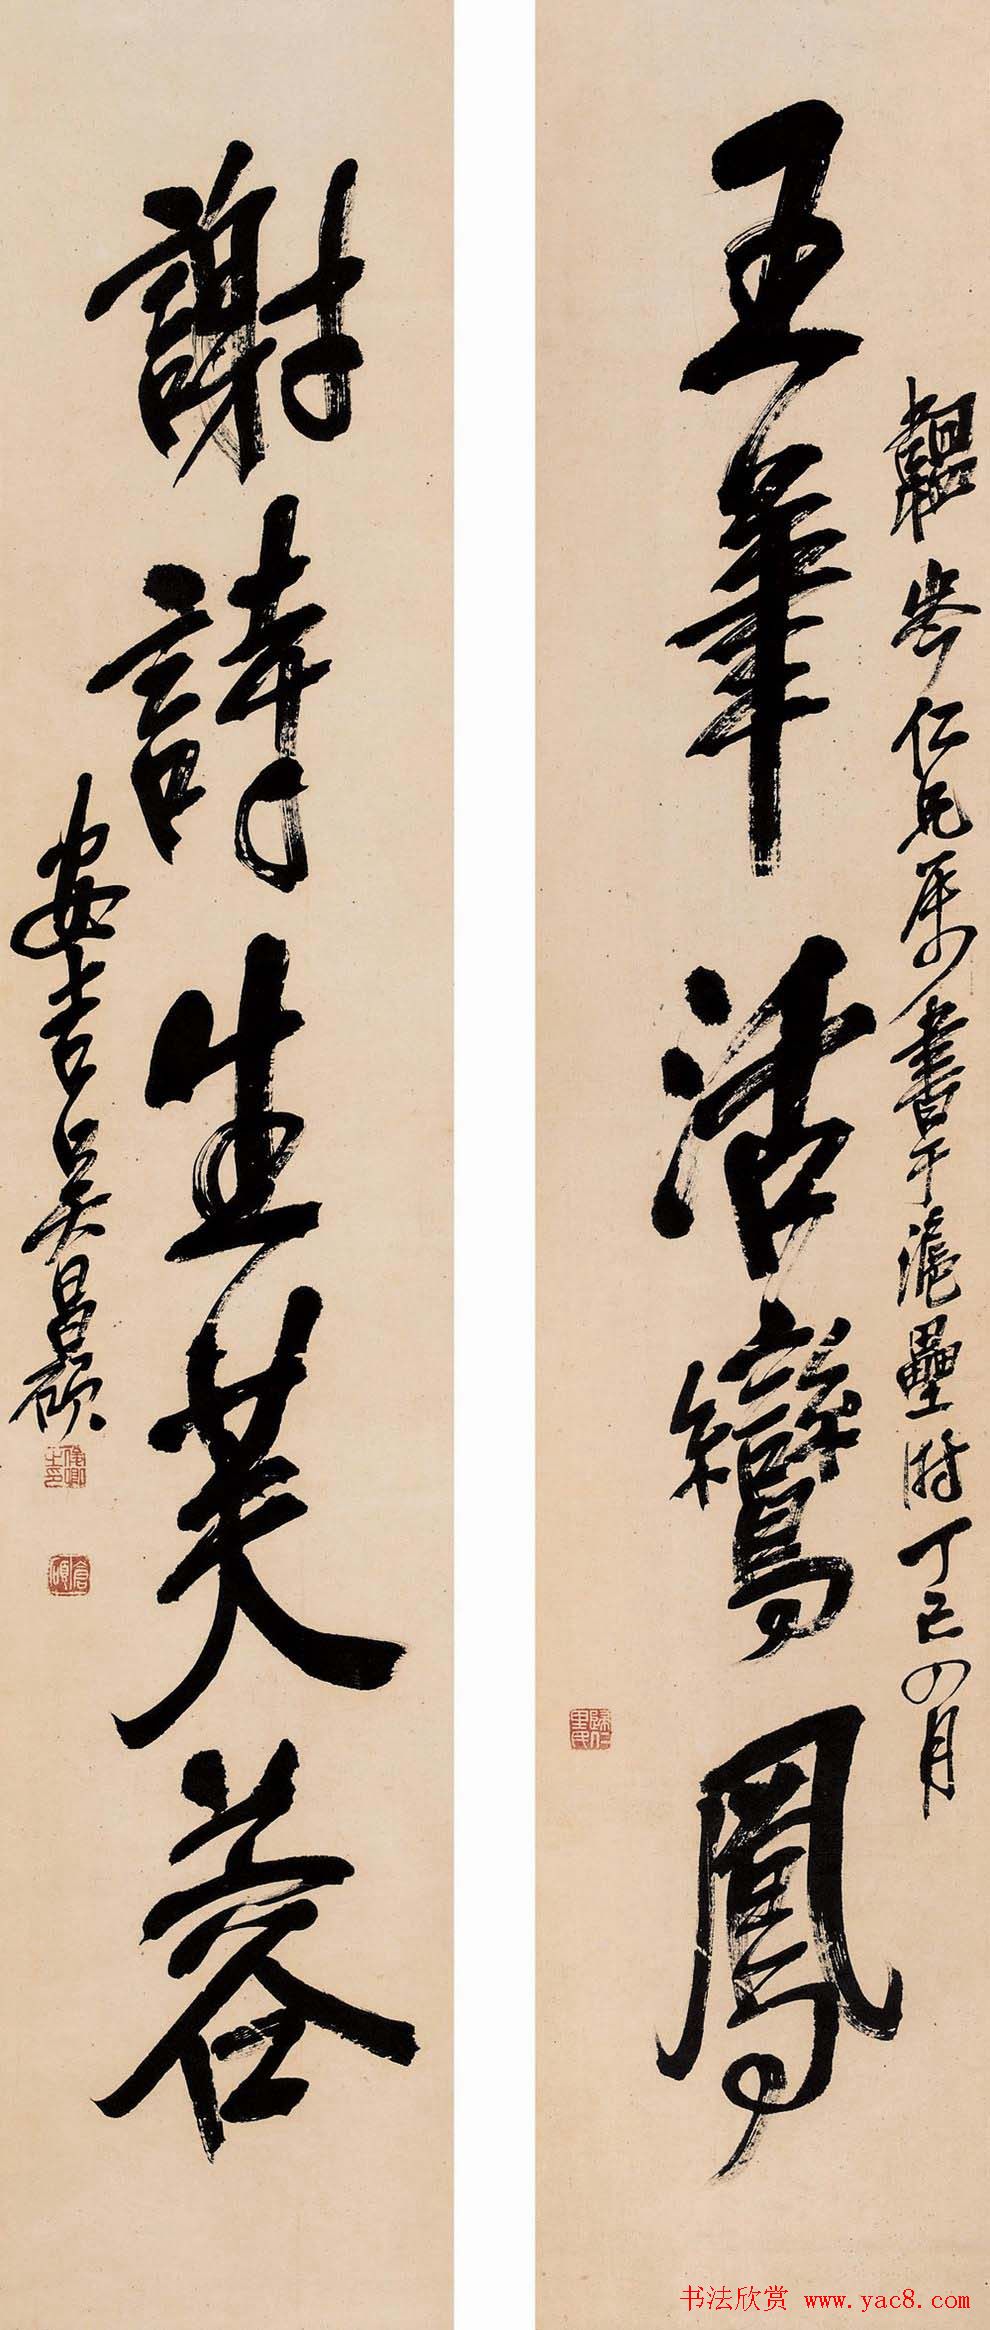 王筆活鸞鳳
韞岑仁兄屬書于滬壘時丁巳四月
謝詩生芙蓉
安吉吳昌碩
歸仁里民
俊卿之印
倉碩
书法欣赏 www.yac8.com